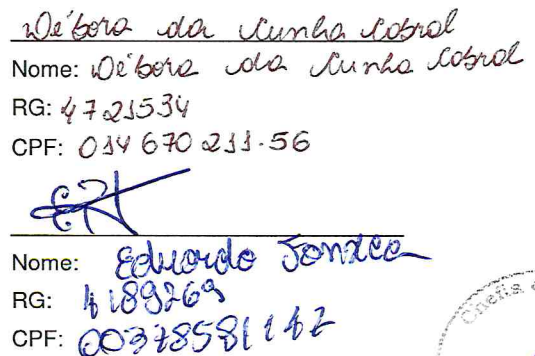 Débora da Cunha Cabral
Nome: Débora da Cunha Cabral
RG: 4721534
CPF: 014 670 211-56
Nome: Eduardo Fonseca
RG: 4189269
CPF: 00378581147
Chefia